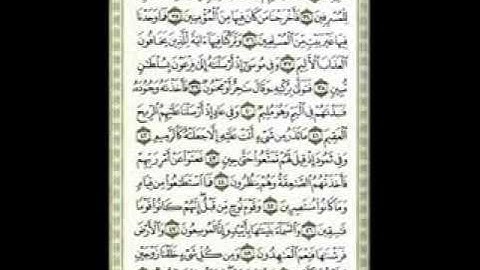 لِّلْمُسْرِفِينَ ٣٤ فَأَخْرَجْنَا مَن كَانَ فِيهَا مِنَ الْمُؤْمِنِينَ ٣٥ فَمَا وَجَدْنَا
فِيهَا غَيْرَ بَيْتٍ مِّنَ الْمُسْلِمِينَ ٣٦ وَتَرَكْنَا فِيهَا ءَايَةً لِّلَّذِينَ يَخَافُونَ
الْعَذَابَ الْأَلِيمَ ٣٧ وَفِي مُوسَىٰ إِذْ أَرْسَلْنَاهُ إِلَىٰ فِرْعَوْنَ بِسُلْطَانٍ
مُّبِينٍ ٣٨ فَتَوَلَّىٰ بِرُكْنِهِ وَقَالَ سَاحِرٌ أَوْ مَجْنُونٌ ٣٩ فَأَخَذْنَاهُ وَجُنُودَهُ
فَنَبَذْنَاهُمْ فِي الْيَمِّ وَهُوَ مُلِيمٌ ٤٠ وَفِي عَادٍ إِذْ أَرْسَلْنَا عَلَيْهِمُ الرِّيحَ
الْعَقِيمَ ٤١ مَا تَذَرُ مِن شَيْءٍ أَتَتْ عَلَيْهِ إِلَّا جَعَلَتْهُ كَالرَّمِيمِ ٤٢
وَفِي ثَمُودَ إِذْ قِيلَ لَهُمْ تَمَتَّعُوا حَتَّىٰ حِينٍ ٤٣ فَعَتَوْا عَنْ أَمْرِ رَبِّهِمْ
فَأَخَذَتْهُمُ الصَّاعِقَةُ وَهُمْ يَنظُرُونَ ٤٤ فَمَا اسْتَطَاعُوا مِن قِيَامٍ
وَمَا كَانُوا مُنتَصِرِينَ ٤٥ وَقَوْمَ نُوحٍ مِّن قَبْلُ إِنَّهُمْ كَانُوا قَوْمًا
فَاسِقِينَ ٤٦ وَالسَّمَاءَ بَنَيْنَاهَا بِأَيْيْدٍ وَإِنَّا لَمُوسِعُونَ ٤٧ وَالْأَرْضَ
فَرَشْنَاهَا فَنِعْمَ الْمَاهِدُونَ ٤٨ وَمِن كُلِّ شَيْءٍ خَلَقْنَا زَوْجَيْنِ